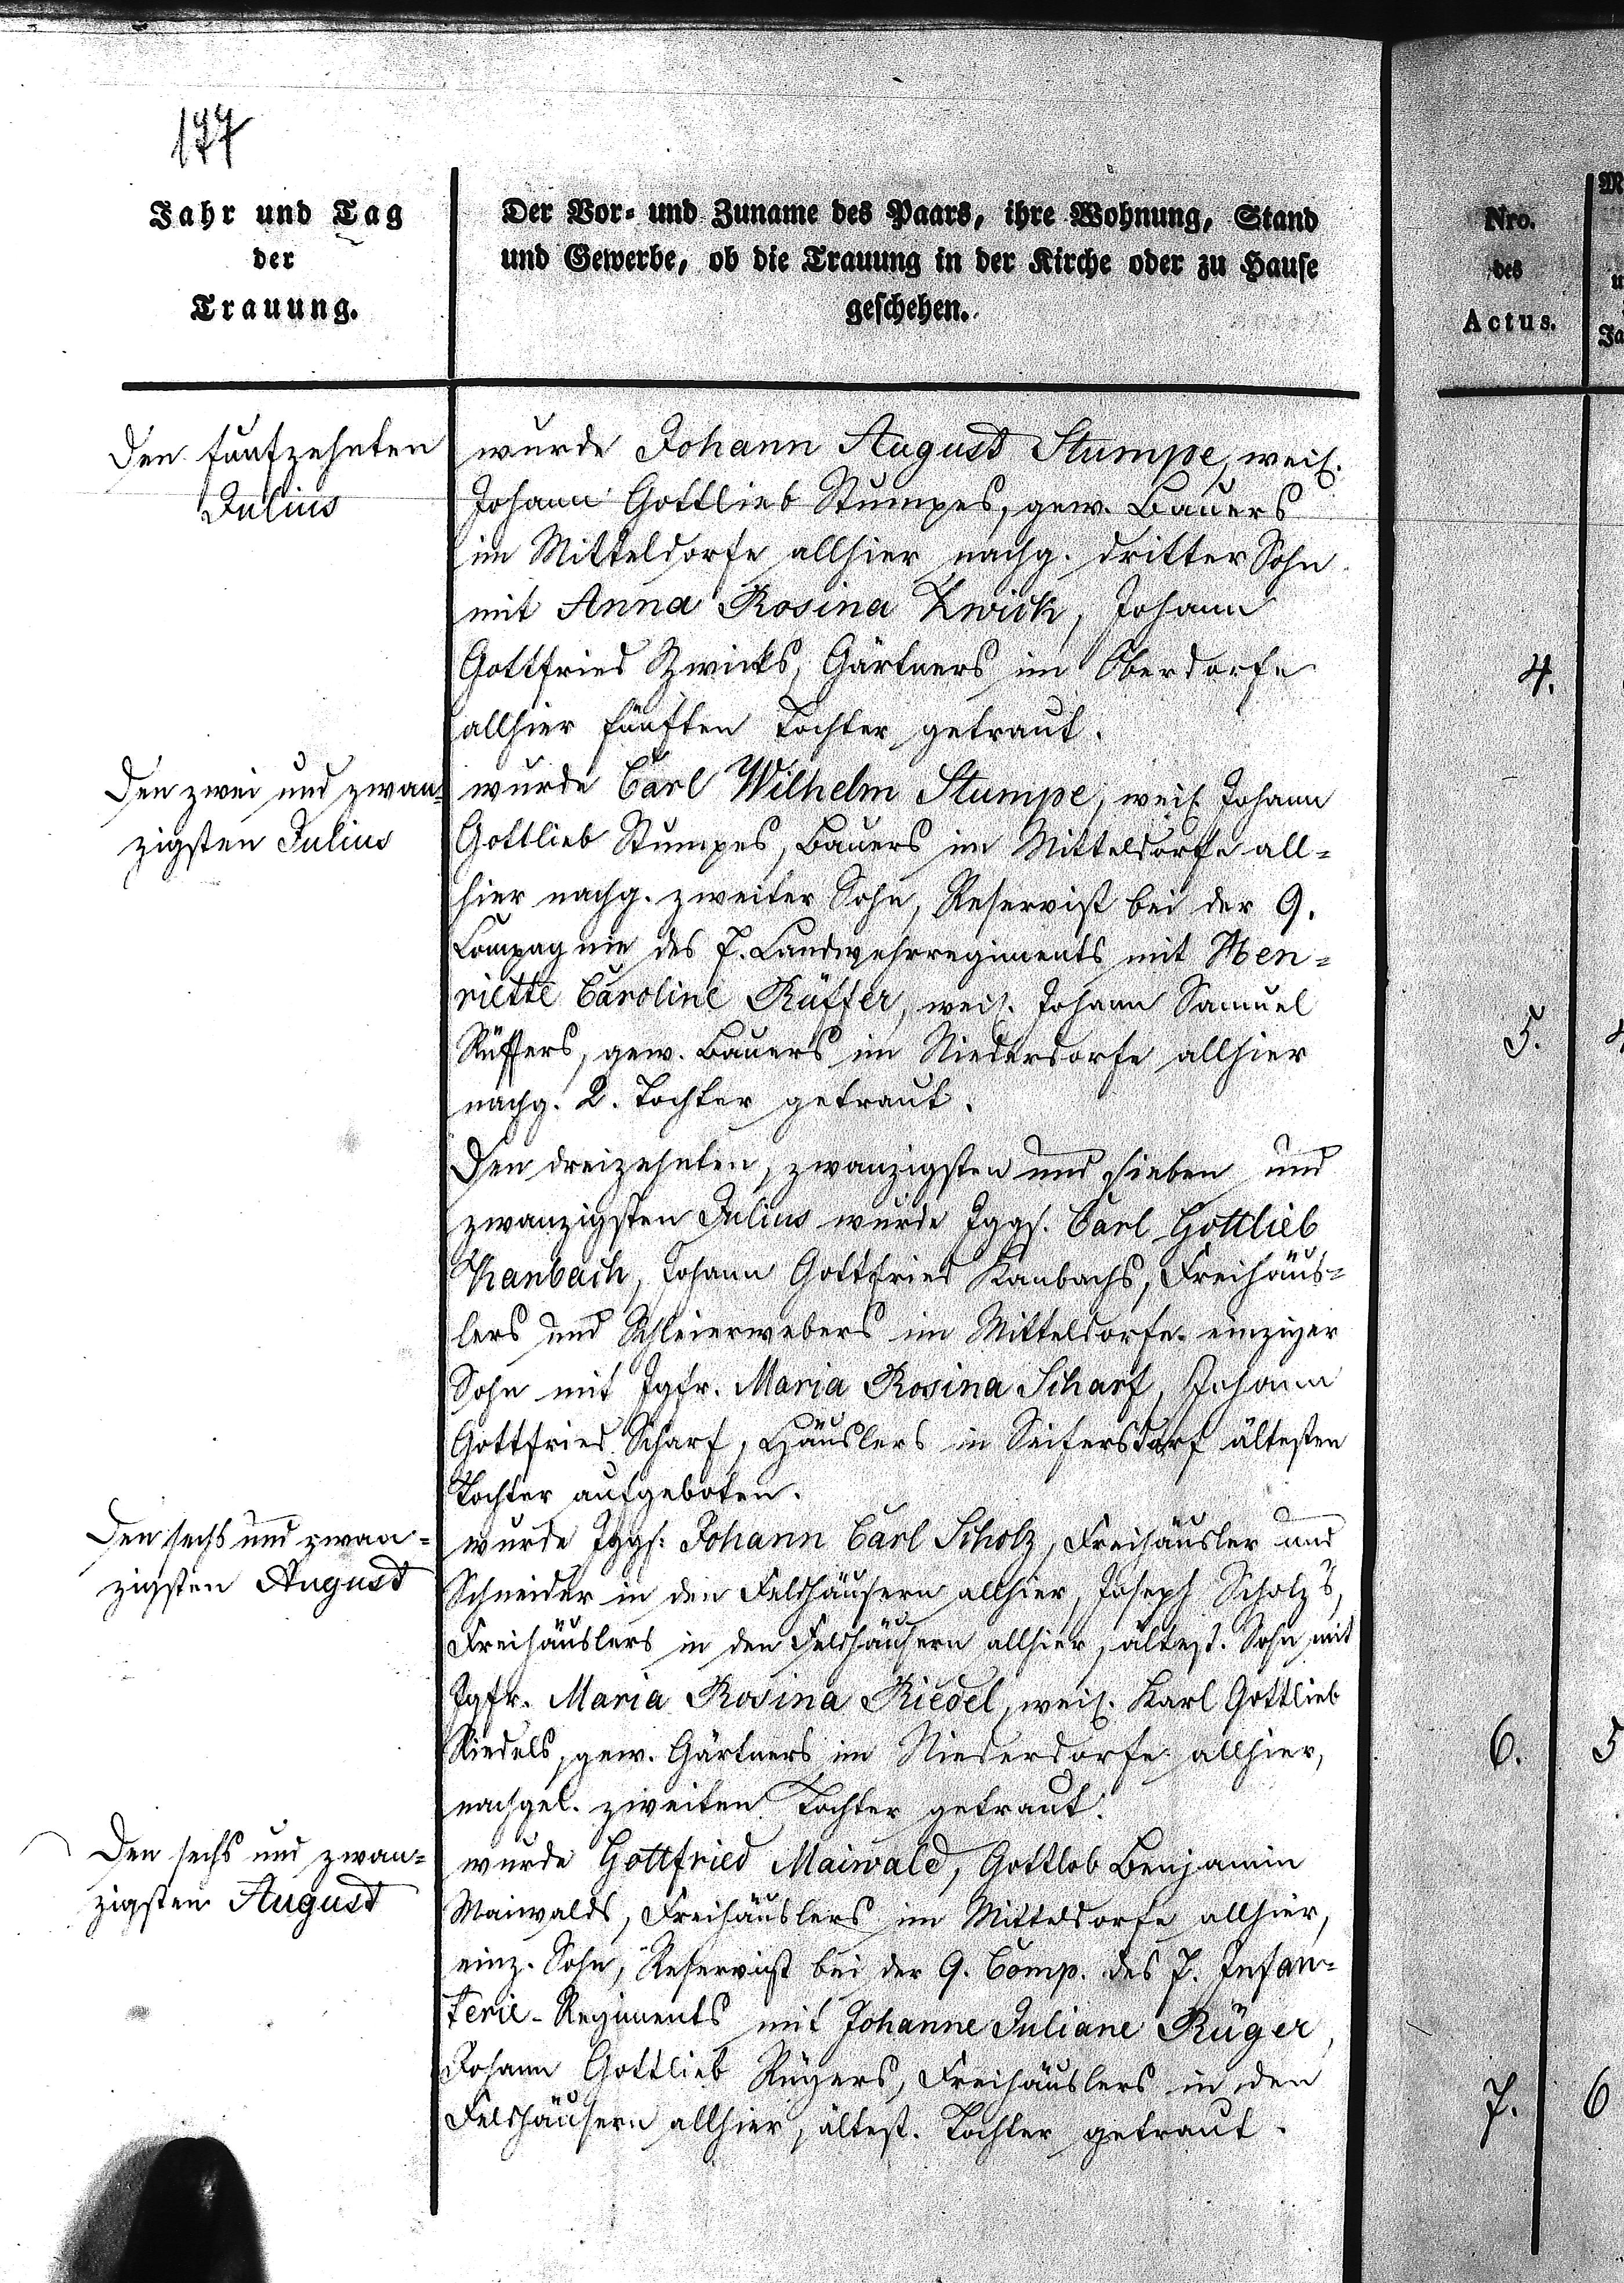 177
Jahr und Tag
der
Trauung.
Der Vor- und Zuname des Paars, ihre Wohnung, Stand
und Gewerbe, ob die Trauung in der Kirche oder zu Hause
geschehen.
Den fünfzehnten
Julius
wurde Johann August Stumpe, weil.
Johann Gottlieb Stumpes, gew. Bauers
im Mitteldorfe allhier nachg. dritter Sohn
mit Anna Rosina Zwick, Johann
Gottfried Zwicks, Gärtners im Oberdorfe
allhier fünften Tochter getraut.
Den zwei und zwan-
zigsten Julius
wurde Carl Wilhelm Stumpe, weil. Johann
Gottlieb Stumpes, Bauers im Mitteldorfe all-
hier nachg. zweiter Sohn, Reservist bei der 9.
Compagnie des 7. Landwehrregiments mit Hen-
riette Caroline Rüffer, weil. Johann Samuel
Rüffers, gew. Bauers im Niederdorfe allhier
nachg. 2. Tochter getraut.
Den dreizehnten, zwanzigsten und sieben und
zwanzigsten Julius wurde Jggs. Carl Gottlieb
Kanbach, Johann Gottfried Kanbachs, Freihäus-
lers und Schleierwebers im Mitteldorfe einziger
Sohn mit Jgfr. Maria Rosina Scharf, Johann
Gottfried Scharf, Häuslers in Seifersdorf ältesten
Tochter aufgeboten.
Den sechs und zwan-
zigsten August
wurde Jggs. Johann Carl Scholz, Freihäusler und
Schneider in den Feldhäusern allhier, Joseph Scholz's,
Freihäuslers in den Feldhäusern allhier, ältest. Sohn mit
Jgfr. Maria Rosina Riedel, weil. Karl Gottlieb
Riedels, gew. Gärtners im Niederdorfe allhier,
nachgel. zweiten Tochter getraut.
Den sechs und zwan-
zigsten August
wurde Gottfried Maiwald, Gottlob Benjamin
Maiwalds, Freihäuslers im Mitteldorfe allhier,
einz. Sohn, Reservist bei der 9. Comp. des 7. Infan-
terie-Regiments mit Johanne Juliane Rüger,
Johann Gottlieb Rügers, Freihäuslers in den
Feldhäusern allhier, ältest. Tochter getraut.
Nro.
des
Actus.
4.
5.
6.
5
7.
6